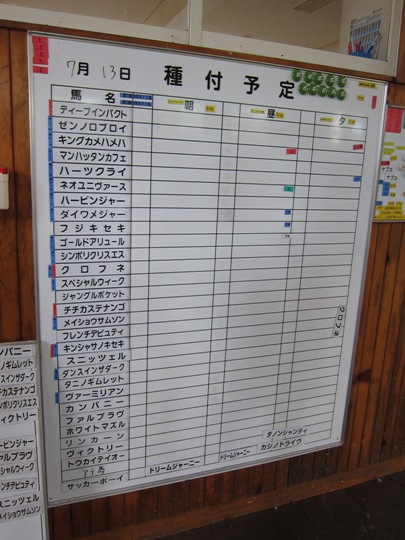 7月13日 種付予定
馬名 朝 昼 夕
ディープインパクト
ゼンノロブロイ
キングカメハメハ
マンハッタンカフェ
ハーツクライ
ネオユニヴァース
ハービンジャー
ダイワメジャー
フジキセキ
ゴールドアリュール
シンボリクリスエス
クロフネ
スペシャルウィーク
ジャングルポケット
チチカステナンゴ
メイショウサムソン
フレンチデピュティ
キンシャサノキセキ
スニッツェル
ダンスインザダーク
タニノギムレット
ヴァーミリアン
カンパニー
ファルブラヴ
ホワイトマズル
リンカーン
ヴィクトリー
トウカイテイオー
サッカーボーイ
クロフネ
ドリームジャーニー
ドリームジャーニー
タノンシャンティ
カジノドライヴ
ナプコ
ナプコ
ンパニー
ノギムレット
スインザダーク
カステナンゴ
ボリクリスエス
ィクトリー
ービンジャー
シャルウィーク
ンチデピュティ
スニッツェル
イショウサムソン